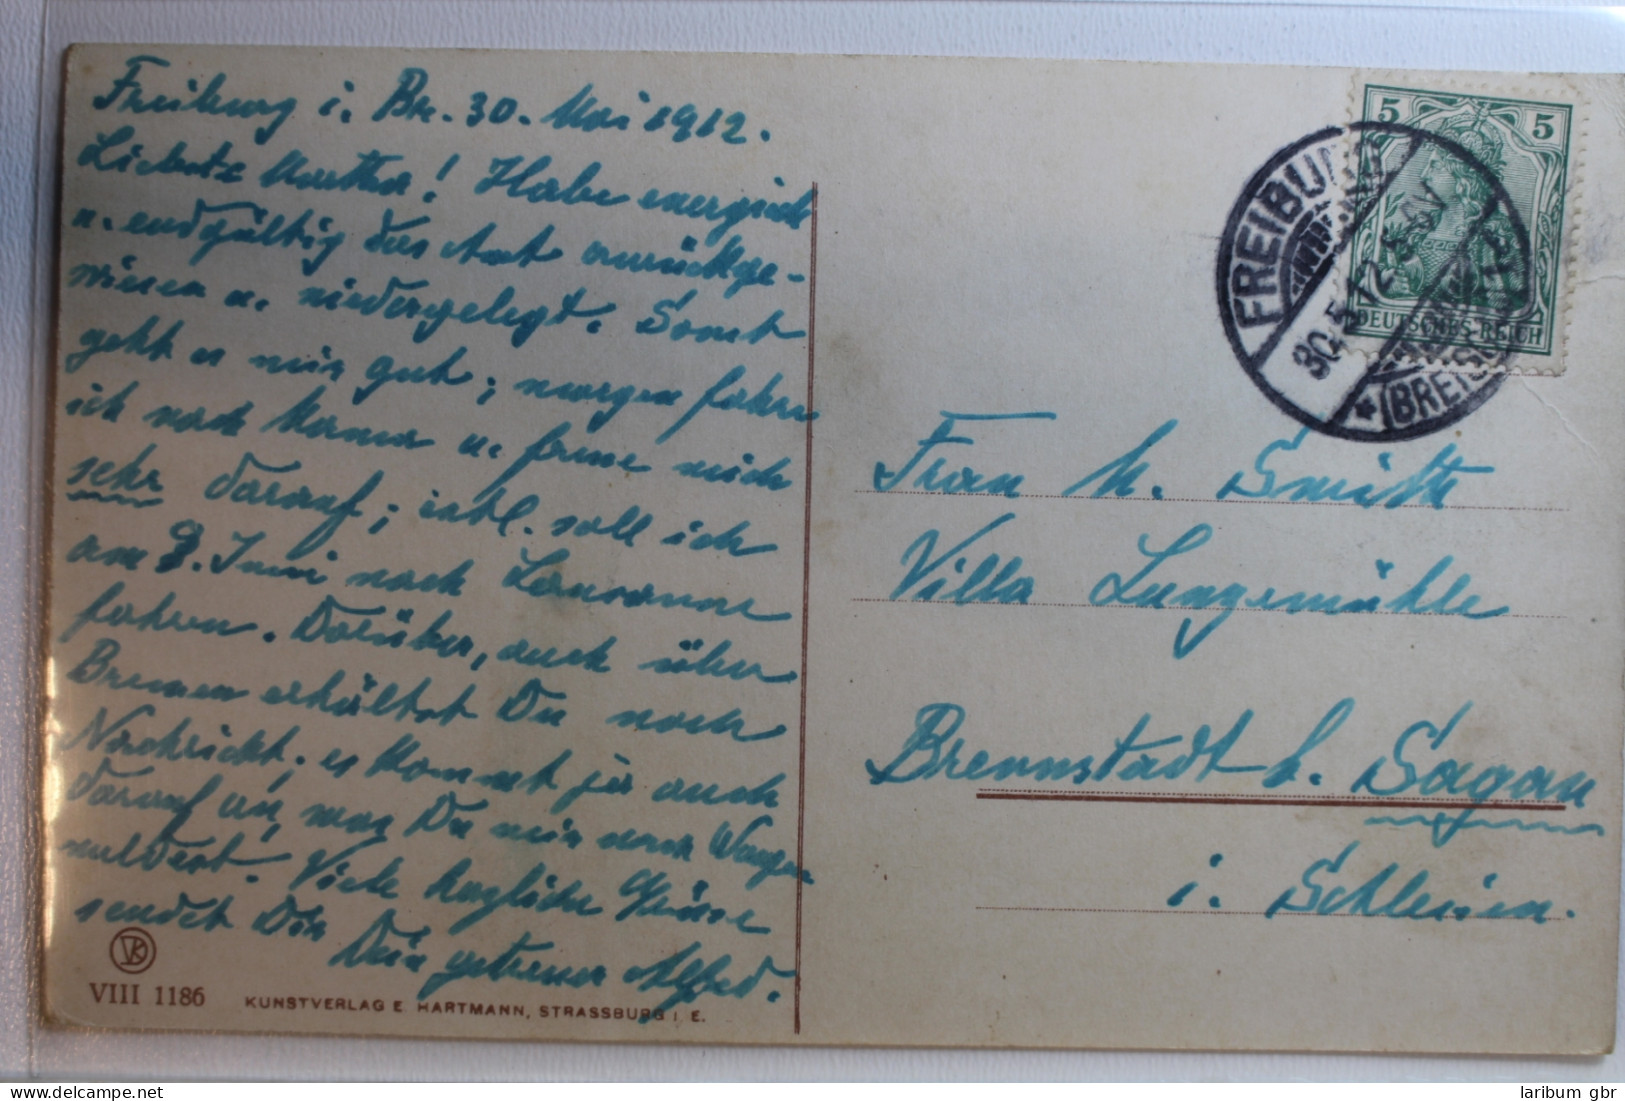 Freiburg i. Br. 30. Mai 1912.
Liebste Martha! Habe energisch
u. endgültig das Amt zurückge-
wiesen u. niedergelegt. Sonst
geht es mir gut; morgen fahre
ich nach Mama u. freue mich
sehr darauf; evtl. soll ich
am 8. Juni nach Lausanne
fahren. Darüber, auch über
Bremen erhältst Du noch
Nachricht. es kommt ja auch
darauf an, was Du mir nach Wangen
meldest. Viele herzliche Grüsse
sendet Dir Dein getreuer Alfred.
VK
VIII 1186
KUNSTVERLAG E. HARTMANN, STRASSBURG I. E.
5 5
DEUTSCHES REICH
FREIBURG
30.5.12. 5-6 N
(BREISGAU)
Frau M. Smith
Villa Lungemühle
Brennstadt b. Sagan
i. Schlesien.
laribum gbr